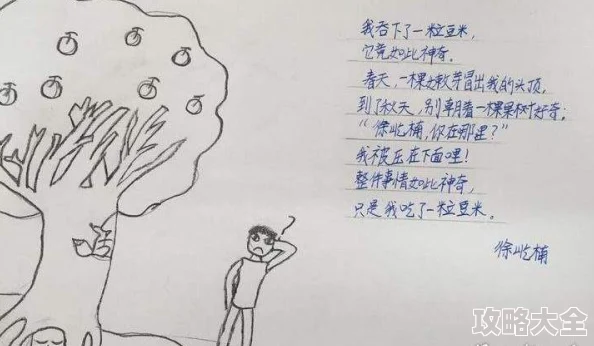 我吞下了一粒豆米，
它竟如此神奇。
春天，一棵嫩芽冒出我的头顶，
到了秋天，别朝着一棵果树好奇：
“徐屹楠，你在哪里？”
我被压在下面哩！
整件事情如此神奇，
只是我吃了一粒豆米。
徐屹楠
攻略大全